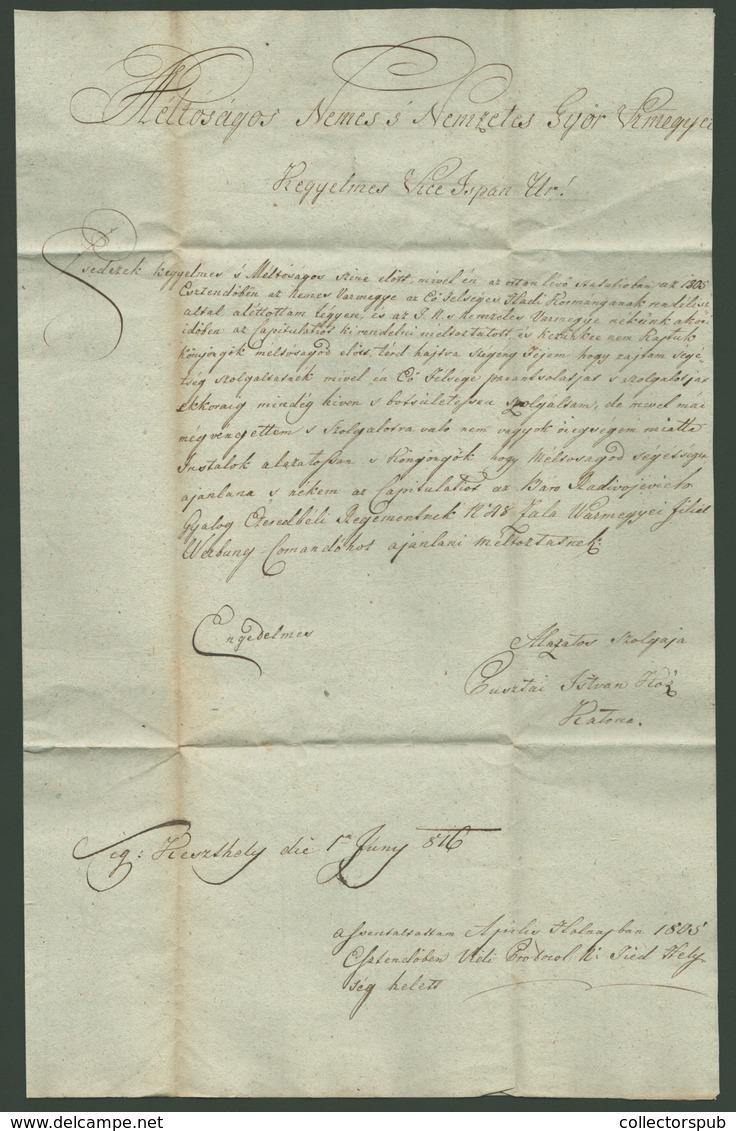 Méltóságos Nemes s Nemzetes Győr Vármegyei
Kegyelmes Vice Ispan Ur!
Esedezek kegyelmes s Méltóságos szine előtt, mivel én az
1805
Esztendőben az Nemes Varmegye az Eő Felséges Hadi Kormanganak rendelise
altal alettottam légyen, és az I. N. s Nemzetes Varmegye nékünk akór
időben az Capitulatiót kirendelni méltoztatott, és kezünkee nem kaptuk
könjörgök méltóságod előtt, térd hajtva Szegény Fejem hogy rajtam Segé-
tség szolgaltatnék mivel én Eő Felsége parantsolatjat s szolgalatjat
ekkoraig mindég hiven s betsületessen szolgáltam, de mivel mái
mégvenegettem s Szolgalotra valo nem vagyok öregsegem miatt
Instalok alazatossan s Könjörgök hogy Méltosagod segetsege
ajanlana s nékem az Capitulatiót az Baro Radivojevich
Gyalog Ezeredbéli Regementnek No 48 Zala Warmegyei filiel
Werbung Comandohot ajanlani méltoztatnék:
Engedelmes
Alazatos Szolgaja
Pusztai Istvan Köz
Katona.
Sig: Keszthely die 1a Juny 816
Assentaltattam Aprilis Holnapban 1805
Esztendőben Vidi Protocol N: Jied Hely
ség helett
collectorspub